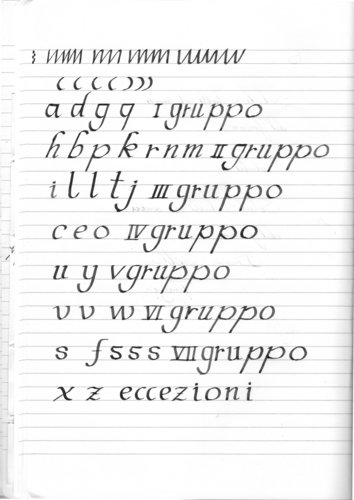 a d g q I gruppo
h b p k r n m II gruppo
i l l t j III gruppo
c e o IV gruppo
u y V gruppo
v v w VI gruppo
s f s s s VII gruppo
x z eccezioni